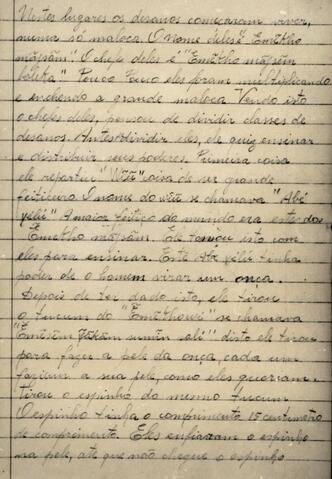 Nestes lugares os desanos começaram viver,
numa só maloca. O nome deles é "Emẽkho
mãpsãm". O chefe deles é "Emẽkho mãpsẽm
boleka" Pouco Pouco eles foram multiplicando
e enchendo a grande maloca. Vendo isto
o chefe deles, pensou de dividir classes de
desanos. Antes dividir eles, ele quiz ensinar
e distribuir seus poderes. Primeira coisa
ele repartiu " coisa de ser grande
feiticeiro. O nome do se chamava "Abé
yẽlii" A maior feitiço do mundo era este dos "
Ẽmẽkho mãpsãm. Ele tomou isto com
eles para ensinar. Este Abé yẽlii tinha
poder de o homem virar um onça.
Depois de ter dado isto, ele tirou
o tucum do se chamava
disto ele tirou
para fazer a pele da onça, cada um
faziam a sua pele, como eles queriam.
tirou o espinho do mesmo tucum
O espinho tinha o comprimento 15 centimetro
de comprimento. Eles enfiaram o espinho
na pele, até que não chegue o espinho